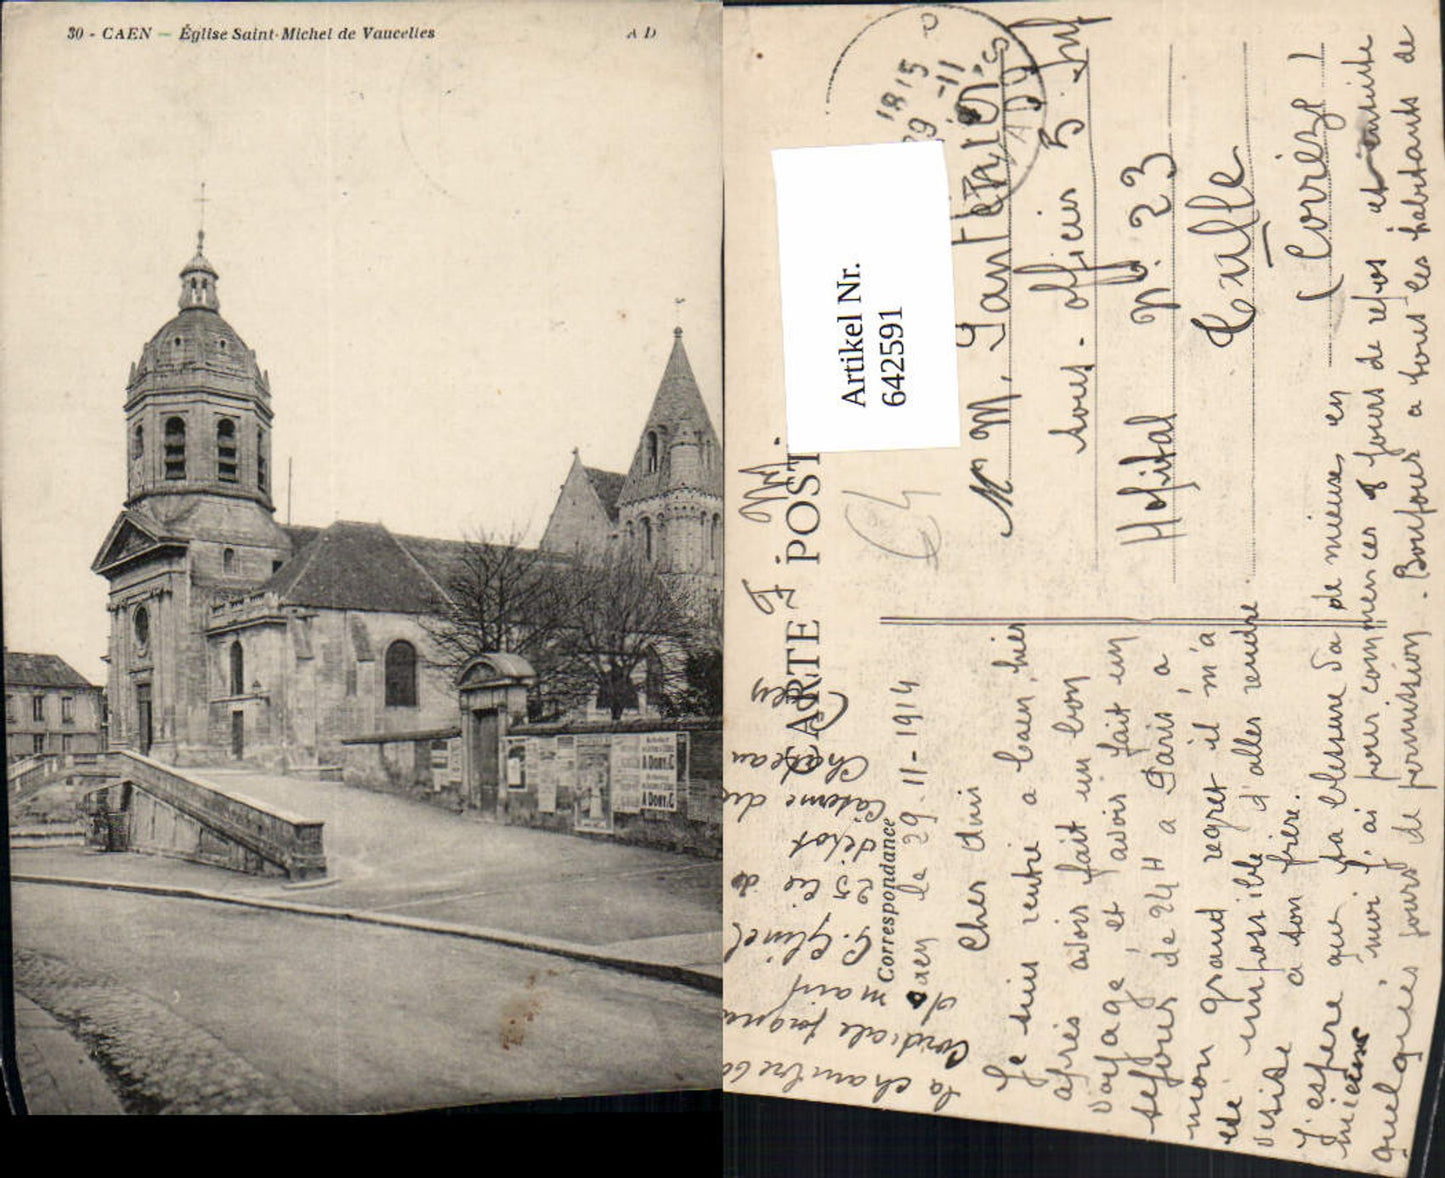 30 - CAEN — Église Saint-Michel de Vaucelles
A D
A DONY.C
A DONY.C
CARTE POST
Correspondance
Artikel Nr.
642591
1815
29 -11
M. M.
sous-officier
Hôpital N° 23
Tulle
(Corrèze)
Caen le 29-11-1914
Cher ami
Je suis rentré a Caen, hier
après avoir fait un bon
voyage, et avoir fait un
séjour de 24 H a Paris, a
mon grand regret il m'a
été impossible d'aller rendre
visite a son frère.
J'espère que ta blessure va de mieux en
mieux, moi j'ai pour commencer 8 jours de repos et ensuite
quelques jours de permission. Bonjour a tous les habitants de
la chambre
Cordiale poignée
de main
G. Glinel
dépot
Caserne du
Chateau
Caen